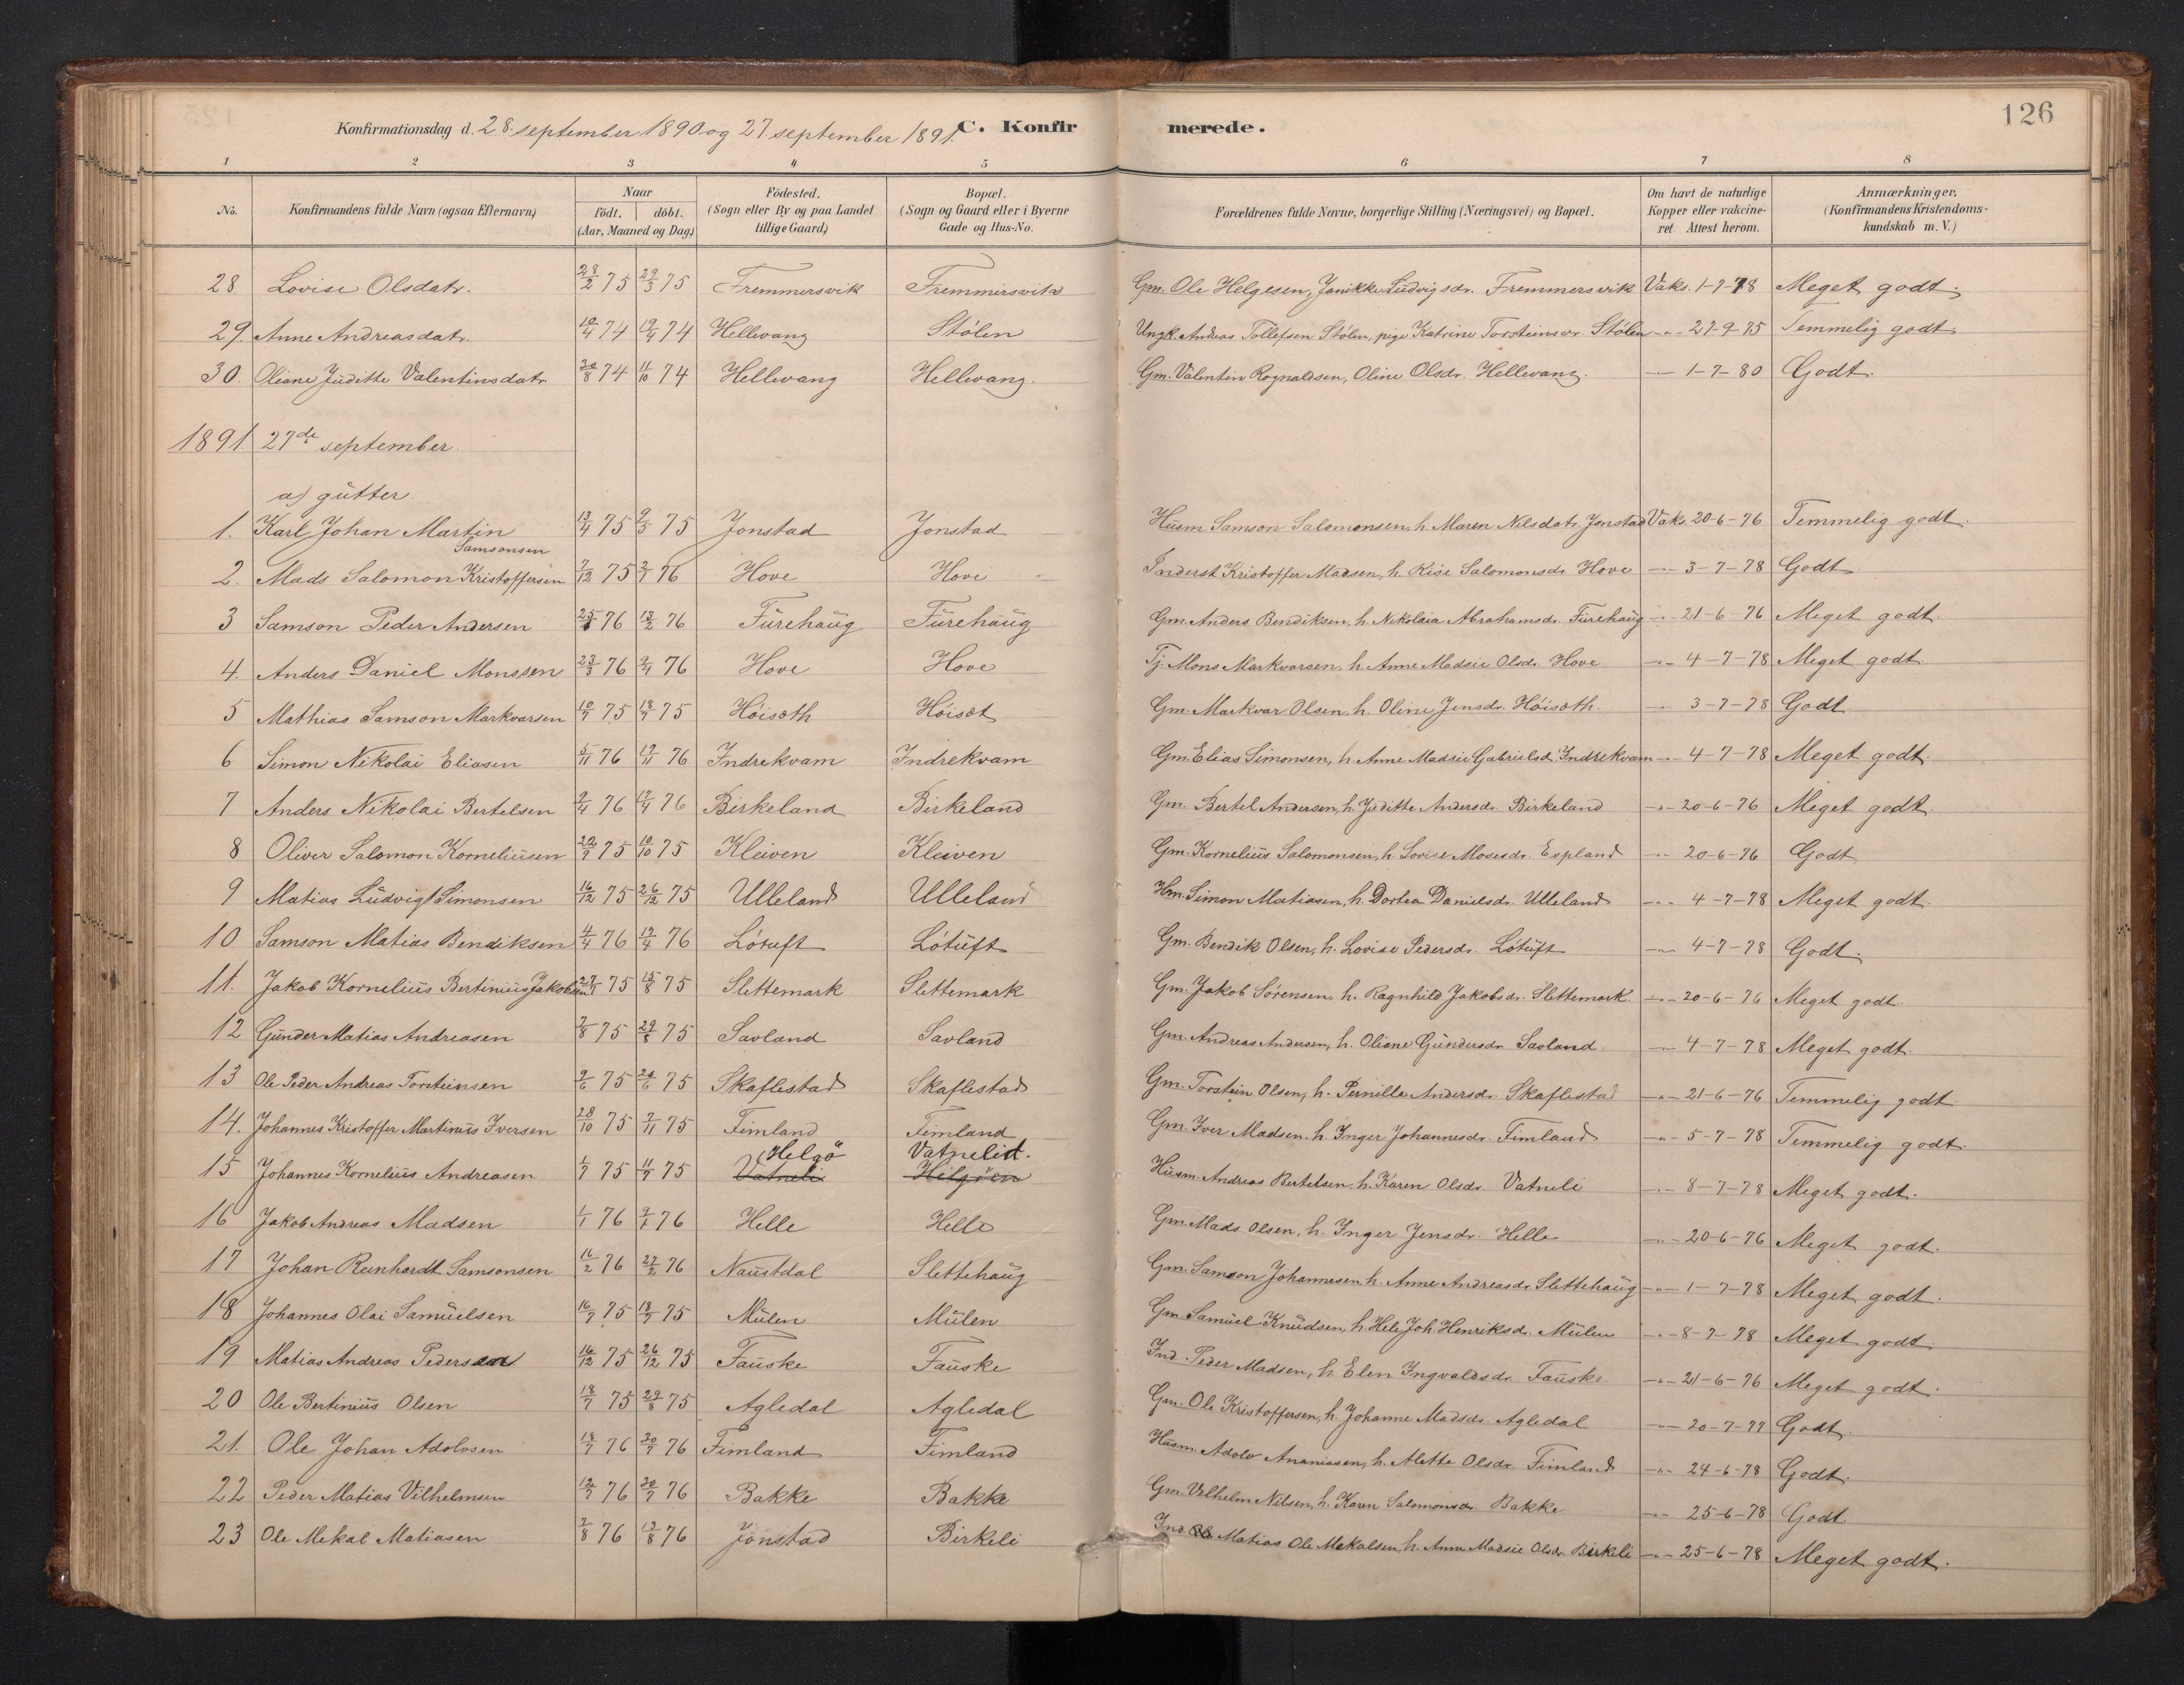 126
Konfirmationsdag d. 28. september 1890 og 27 september 1891. C. Konfirmerede.
1 2 3 4 5 6 7 8
No. Konfirmandens fulde Navn (ogsaa Efternavn) Naar født. døbt. (Aar, Maaned og Dag) Fødested. (Sogn eller By og paa Landet tillige Gaard) Bopæl. (Sogn og Gaard eller i Byerne Gade og Hus-No. Forældrenes fulde Navne, borgerlige Stilling (Næringsvei) og Bopæl. Om havt de naturlige Kopper eller vakcineret. Attest herom. Anmærkninger. (Konfirmandens Kristendomskundskab m. V.)
28 Lovise Olsdatr. 28/2 75 29/3 75 Fremmersvik Fremmersvik Gm. Ole Helgesen, Janikke Ludvigsdr. Fremmersvik Vaks. 1-7-78 Meget godt.
29. Anne Andreasdatr. 10/4 74 19/4 74 Hellevang Stölen Ungk. Andreas Tollefsen Stölen, pige Katrine Torsteinsdr. Stölen -"- 27-9-75 Temmelig godt.
30. Oliane Juditte Valentinsdatr. 30/8 74 11/10 74 Hellevang Hellevang. Gm. Valentin Rognaldsen, Oline Olsdr. Hellevang. -"- 1-7-80 Godt.
1891. 27de september.
a) gütter.
1. Karl Johan Martin Samsonsen 13/4 75 9/5 75 Jonstad Jonstad Husm. Samson Salomonsen, h. Maren Nilsdatr. Jonstad Vaks. 20-6-76 Temmelig godt.
2. Mads Salomon Kristoffersen 7/12 75 2/1 76 Hove Hove Inderst Kristoffer Madsen, h. Rise Salomonsdr. Hove -"- 3-7-78 Godt
3 Samson Peder Andersen 25/1 76 13/2 76 Fürehaüg Fürehaüg Gm. Anders Bendiksen, h. Nikolaia Abrahamsdr. Fürehaug -"- 21-6-76 Meget godt.
4. Anders Daniel Monssen 23/3 76 9/4 76 Hove Hove Tj. Mons Markvarsen, h. Anne Madsie Olsdr. Hove -"- 4-7-78 Meget godt.
5 Mathias Samson Markvarsen 10/7 75 18/7 75 Höisæth Höisæt Gm. Markvar Olsen, h. Oline Jensdr. Höisæth. -"- 3-7-78 Godt.
6 Simon Nikolai Eliasen 5/11 76 19/11 76 Indrekvam Indrekvam Gm. Elias Simonsen, h. Anne Madsie Gabrielsd. Indrekvam -"- 4-7-78 Meget godt.
7 Anders Nikolai Bertelsen 2/4 76 17/4 76 Birkeland Birkeland Gm. Bertel Andersen, h. Juditte Andersdr. Birkeland -"- 20-6-76 Meget godt.
8 Oliver Salomon Korneliüsen 22/9 75 10/10 75 Kleiven Kleiven Gm. Korneliüs Salomonsen, h. Lovise Mosesdr. Espland -"- 20-6-76 Godt
9 Matias Lüdvig Simonsen 16/12 75 26/12 75 Ulleland Ulleland Hm. Simon Matiasen, h. Dortea Danielsdr. Ulleland -"- 4-7-78 Meget godt.
10 Samson Matias Bendiksen 4/4 76 17/4 76 Lötuft Lötüft Gm. Bendik Olsen, h. Lovise Pedersdr. Lötüft -"- 4-7-78 Godt.
11. Jakob Korneliüs Bertiniüs Jakobsen 27/7 75 15/8 75 Slettemark Slettemark Gm. Jakob Sörensen, h. Ragnhild Jakobsdr. Slettemark. -"- 20-6-76 Meget godt.
12 Günder Matias Andreasen 7/8 75 29/8 75 Savland Savland Gm. Andreas Andersen, h. Oliane Gündersdr. Savland. -"- 4-7-78 Meget godt.
13 Ole Peder Andreas Torsteinsen 2/6 75 20/6 75 Skaflestad Skaflestad Gm. Torstein Olsen, h. Pernille Andersdr. Skaflestad -"- 21-6-76 Temmelig godt
14. Johannes Kristoffer Martinüs Iversen 28/10 75 7/11 75 Fimland Fimland Gm. Iver Madsen, h. Inger Johannesdr. Fimland -"- 5-7-78 Temmelig godt.
15 Johannes Korneliüs Andreasen 1/7 75 11/7 75 Vatneli Helgö Helgöen Vatnelid. Husm. Andreas Bertelsen, h. Karen Olsdr. Vatneli -"- 8-7-78 Meget godt.
16 Jakob Andreas Madsen 1/1 76 9/1 76 Helle Helle Gm. Mads Olsen, h. Inger Jensdr. Helle -"- 20-6-76 Meget godt.
17 Johan Reinhardt Samsonsen 16/2 76 27/2 76 Naüstdal Slettehaüg Gm. Samson Johannesen, h. Anne Andreasdr. Slettehaüg -"- 1-7-78 Meget godt.
18 Johannes Olai Samüelsen 16/7 75 18/7 75 Mülen Mülen Gm. Samüel Knüdsen, h. Hele Joh. Henriksdr. Mülen -"- 8-7-78 Meget godt.
19 Matias Andreas Pedersen 16/12 75 26/12 75 Faüske Faüske Ind. Peder Madsen, h. Elen Ingvaldsdr. Faüske -"- 21-6-76 Meget godt.
20 Ole Bertiniüs Olsen 18/7 75 29/8 75 Agledal Agledal Gm. Ole Kristoffersen, h. Johanne Madsdr. Agledal -"- 20-7-77 Godt.
21. Ole Johan Adolvsen 18/7 76 30/7 76 Fimland Fimland Husm. Adolv Ananiasen, h. Alette Olsdr. Fimland -"- 24-6-78 Godt.
22 Peder Matias Vilhelmsen 12/7 76 30/7 76 Bakke Bakke Gm. Vilhelm Nilsen, h. Karen Salomonsdr. Bakke -"- 25-6-78 Godt.
23 Ole Mekal Matiasen 2/8 76 13/8 76 Jonstad Birkeli Ind. Matias Ole Mekalsen, h. Anne Madsie Olsdr. Birkeli -"- 25-6-78 Meget godt.